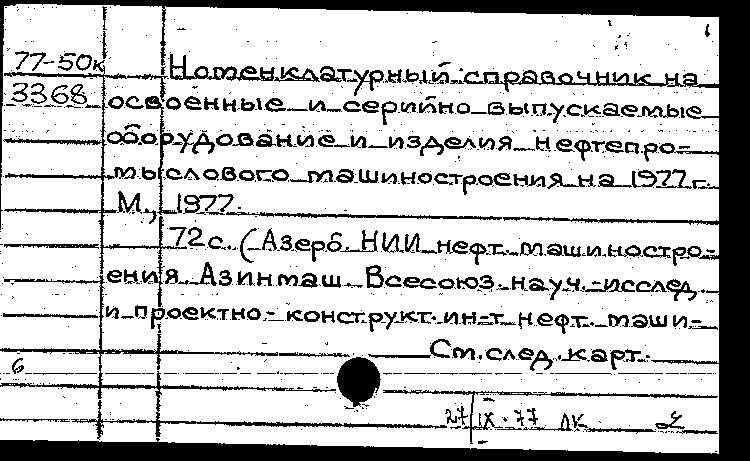 77-50к Номенклатурный справочник на
3368 освоенные и серийно выпускаемые
оборудование и изделия нефтепро-
мыслового машиностроения на 1977 г.
М., 1977.
72 с. (Азерб. НИИ нефт. машиностро-
ения Азинмаш. Всесоюз. науч.-исслед.
и проектно-конструкт. ин-т нефт. маши-
См. след. карт.
6
27/IX-77 ЛК